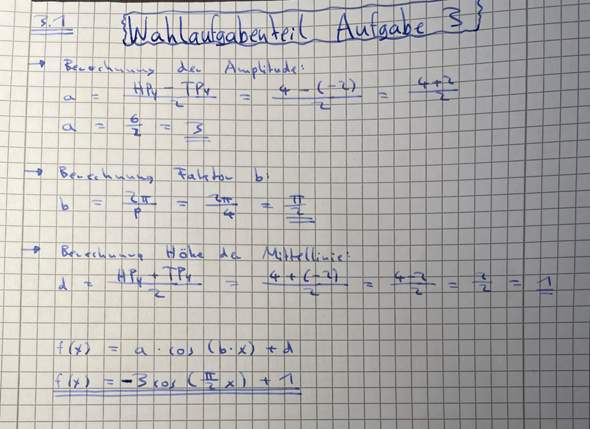 3.1 Wahlaufgabenteil Aufgabe 3
→ Berechnung der Amplitude:
a = (HPy − TPy)/2 = (4 − (−2))/2 = (4+2)/2
a = 6/2 = 3
→ Berechnung Faktor b:
b = 2π/p = 2π/4 = π/2
→ Berechnung Höhe der Mittellinie:
d = (HPy + TPy)/2 = (4 + (−2))/2 = (4−2)/2 = 2/2 = 1
f(x) = a · cos (b·x) + d
f(x) = −3 cos (π/2 x) + 1